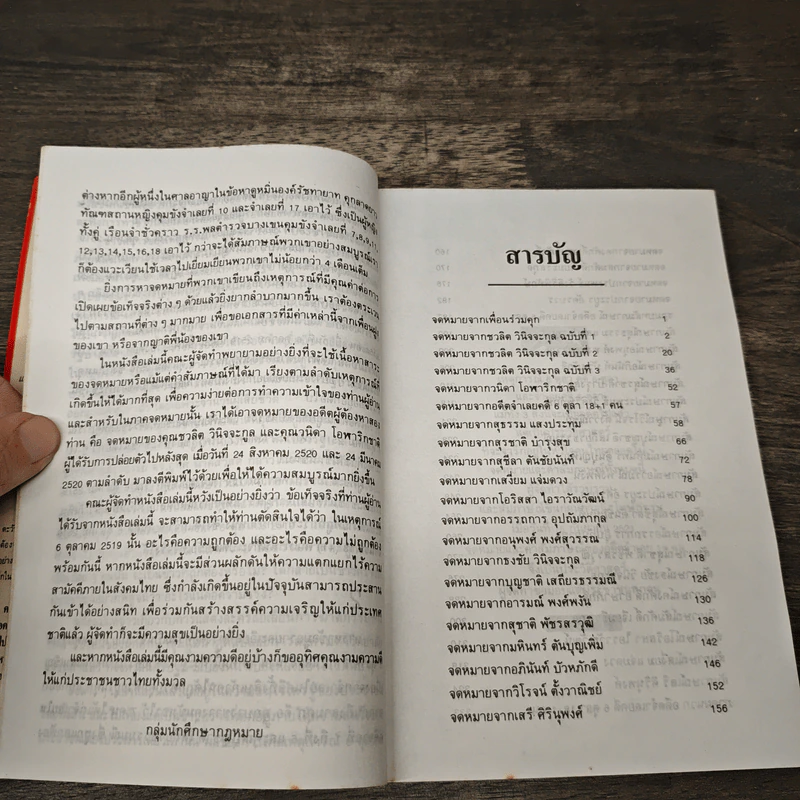 ต่างหากอีกผู้หนึ่งในศาลอาญาในข้อหาดูหมิ่นองค์รัชทายาท
ทัณฑสถานหญิงคุมขังจำเลยที่ 10 และจำเลยที่ 17 เอาไว้ ซึ่งเป็นผู้หญิง
ทั้งคู่ เรือนจำชั่วคราว ร.ร.พลตำรวจบางเขนคุมขังจำเลยที่ 7,8,9,11
12,13,14,15,16,18 เอาไว้ กว่าจะได้สัมภาษณ์พวกเขาอย่างสมบูรณ์เรา
ก็ต้องแวะเวียนใช้เวลาไปเยี่ยมเยียนพวกเขาไม่น้อยกว่า 4 เดือนเต็ม
ยิ่งการหาจดหมายที่พวกเขาเขียนถึงเหตุการณ์ที่มีคุณค่าต่อการ
เปิดเผยข้อเท็จจริงต่าง ๆ ด้วยแล้วยิ่งยากลำบากมากขึ้น เราต้องตระเวน
ไปตามสถานที่ต่าง ๆ มากมาย เพื่อขอเอกสารที่มีค่าเหล่านี้จากเพื่อนฝูง
ของเขา หรือจากญาติพี่น้องของเขา
ในหนังสือเล่มนี้คณะผู้จัดทำพยายามอย่างยิ่งที่จะใช้เนื้อหาสาระ
ของจดหมายหรือแม้แต่คำสัมภาษณ์ที่ได้มา เรียงตามลำดับเหตุการณ์ที่
เกิดขึ้นให้ได้มากที่สุด เพื่อความง่ายต่อการทำความเข้าใจของท่านผู้อ่าน
และสำหรับในภาคจดหมายนั้น เราได้เอาจดหมายของอดีตผู้ต้องหาสอง
ท่าน คือ จดหมายของคุณชวลิต วินิจจะกูล และคุณวนิดา โอฬาริกชาติ
ผู้ได้รับการปล่อยตัวไปหลังสุด เมื่อวันที่ 24 สิงหาคม 2520 และ 24 มีนาคม
2520 ตามลำดับ มาลงตีพิมพ์ไว้ด้วยเพื่อให้ได้ความสมบูรณ์มากยิ่งขึ้น
คณะผู้จัดทำหนังสือเล่มนี้หวังเป็นอย่างยิ่งว่า ข้อเท็จจริงที่ท่านผู้อ่าน
ได้รับจากหนังสือเล่มนี้ จะสามารถทำให้ท่านตัดสินใจได้ว่า ในเหตุการณ์
6 ตุลาคม 2519 นั้น อะไรคือความถูกต้อง และอะไรคือความไม่ถูกต้อง
พร้อมกันนี้ หากหนังสือเล่มนี้จะมีส่วนผลักดันให้ความแตกแยกไร้ความ
สามัคคีภายในสังคมไทย ซึ่งกำลังเกิดขึ้นอยู่ในปัจจุบันสามารถประสาน
กันเข้าได้อย่างสนิท เพื่อร่วมกันสร้างสรรค์ความเจริญให้แก่ประเทศ
ชาติแล้ว ผู้จัดทำก็จะมีความสุขเป็นอย่างยิ่ง
และหากหนังสือเล่มนี้มีคุณงามความดีอยู่บ้างก็ขออุทิศคุณงามความดี
ให้แก่ประชาชนชาวไทยทั้งมวล
กลุ่มนักศึกษากฎหมาย
สารบัญ
จดหมายจากเพื่อนร่วมคุก 1
จดหมายจากชวลิต วินิจจะกูล ฉบับที่ 1 2
จดหมายจากชวลิต วินิจจะกูล ฉบับที่ 2 20
จดหมายจากชวลิต วินิจจะกูล ฉบับที่ 3 36
จดหมายจากวนิดา โอฬาริกชาติ 52
จดหมายจากอดีตจำเลยคดี 6 ตุลา 18+1 คน 57
จดหมายจากสุธรรม แสงประทุม 58
จดหมายจากสุรชาติ บำรุงสุข 66
จดหมายจากสุชีลา ตันชัยนันท์ 72
จดหมายจากเสงี่ยม แจ่มดวง 78
จดหมายจากโอริสสา ไอราวัณวัฒน์ 90
จดหมายจากอรรถการ อุปถัมภากุล 100
จดหมายจากอนุพงศ์ พงศ์สุวรรณ 114
จดหมายจากธงชัย วินิจจะกูล 118
จดหมายจากบุญชาติ เสถียรธรรมณี 126
จดหมายจากอารมณ์ พงศ์พงัน 130
จดหมายจากสุชาติ พัชรสรวุฒิ 136
จดหมายจากมหินทร์ ตันบุญเพิ่ม 142
จดหมายจากอภินันท์ บัวหภักดี 146
จดหมายจากวิโรจน์ ตั้งวาณิชย์ 152
จดหมายจากเสรี ศิรินุพงศ์ 156